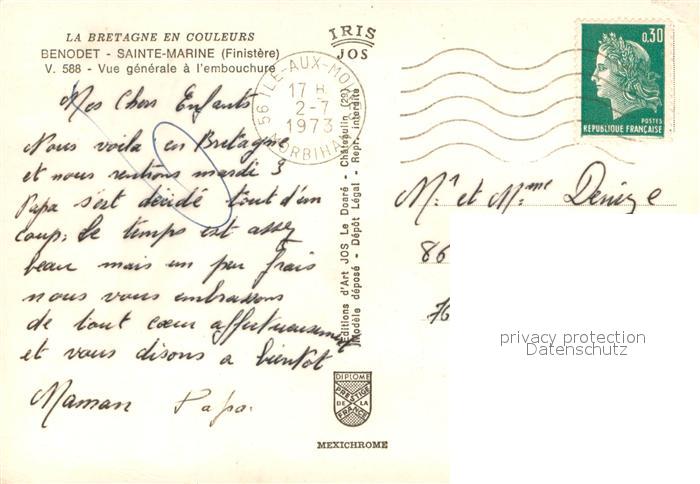 LA BRETAGNE EN COULEURS
BENODET - SAINTE-MARINE (Finistère)
V. 588 - Vue générale à l'embouchure
Mes Chers Enfants
Nous voila en Bretagne
et nous rentrons mardi 3
Papa s'est décidé tout d'un
coup. Le temps est assez
beau mais un peu frais
nous vous embrassons
de tout cœur affectueusement
et vous disons a bientot
Maman Papa.
IRIS
JOS
Editions d'Art JOS Le Doaré - Châteaulin (29)
Modèle déposé - Dépôt Légal - Repr. interdite
DIPLOME
PRESTIGE
DE LA
FRANCE
MEXICHROME
56 ILE-AUX-MOINES
17 H
2-7
1973
MORBIHAN
0,30
POSTES
REPUBLIQUE FRANÇAISE
Mr et Mme
86
76
privacy protection
Datenschutz